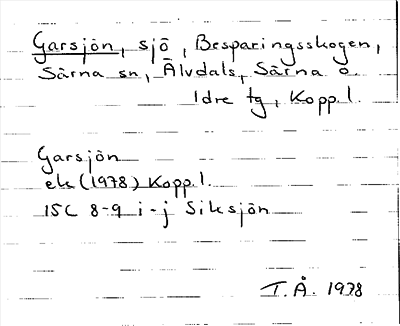 Garsjön, sjö, Besparingsskogen,
Särna sn, Älvdals, Särna o.
Idre tg, Kopp.l.
Garsjön
ek (1978) Kopp.l.
15C 8-9 i-j Siksjön
T.Å. 1978